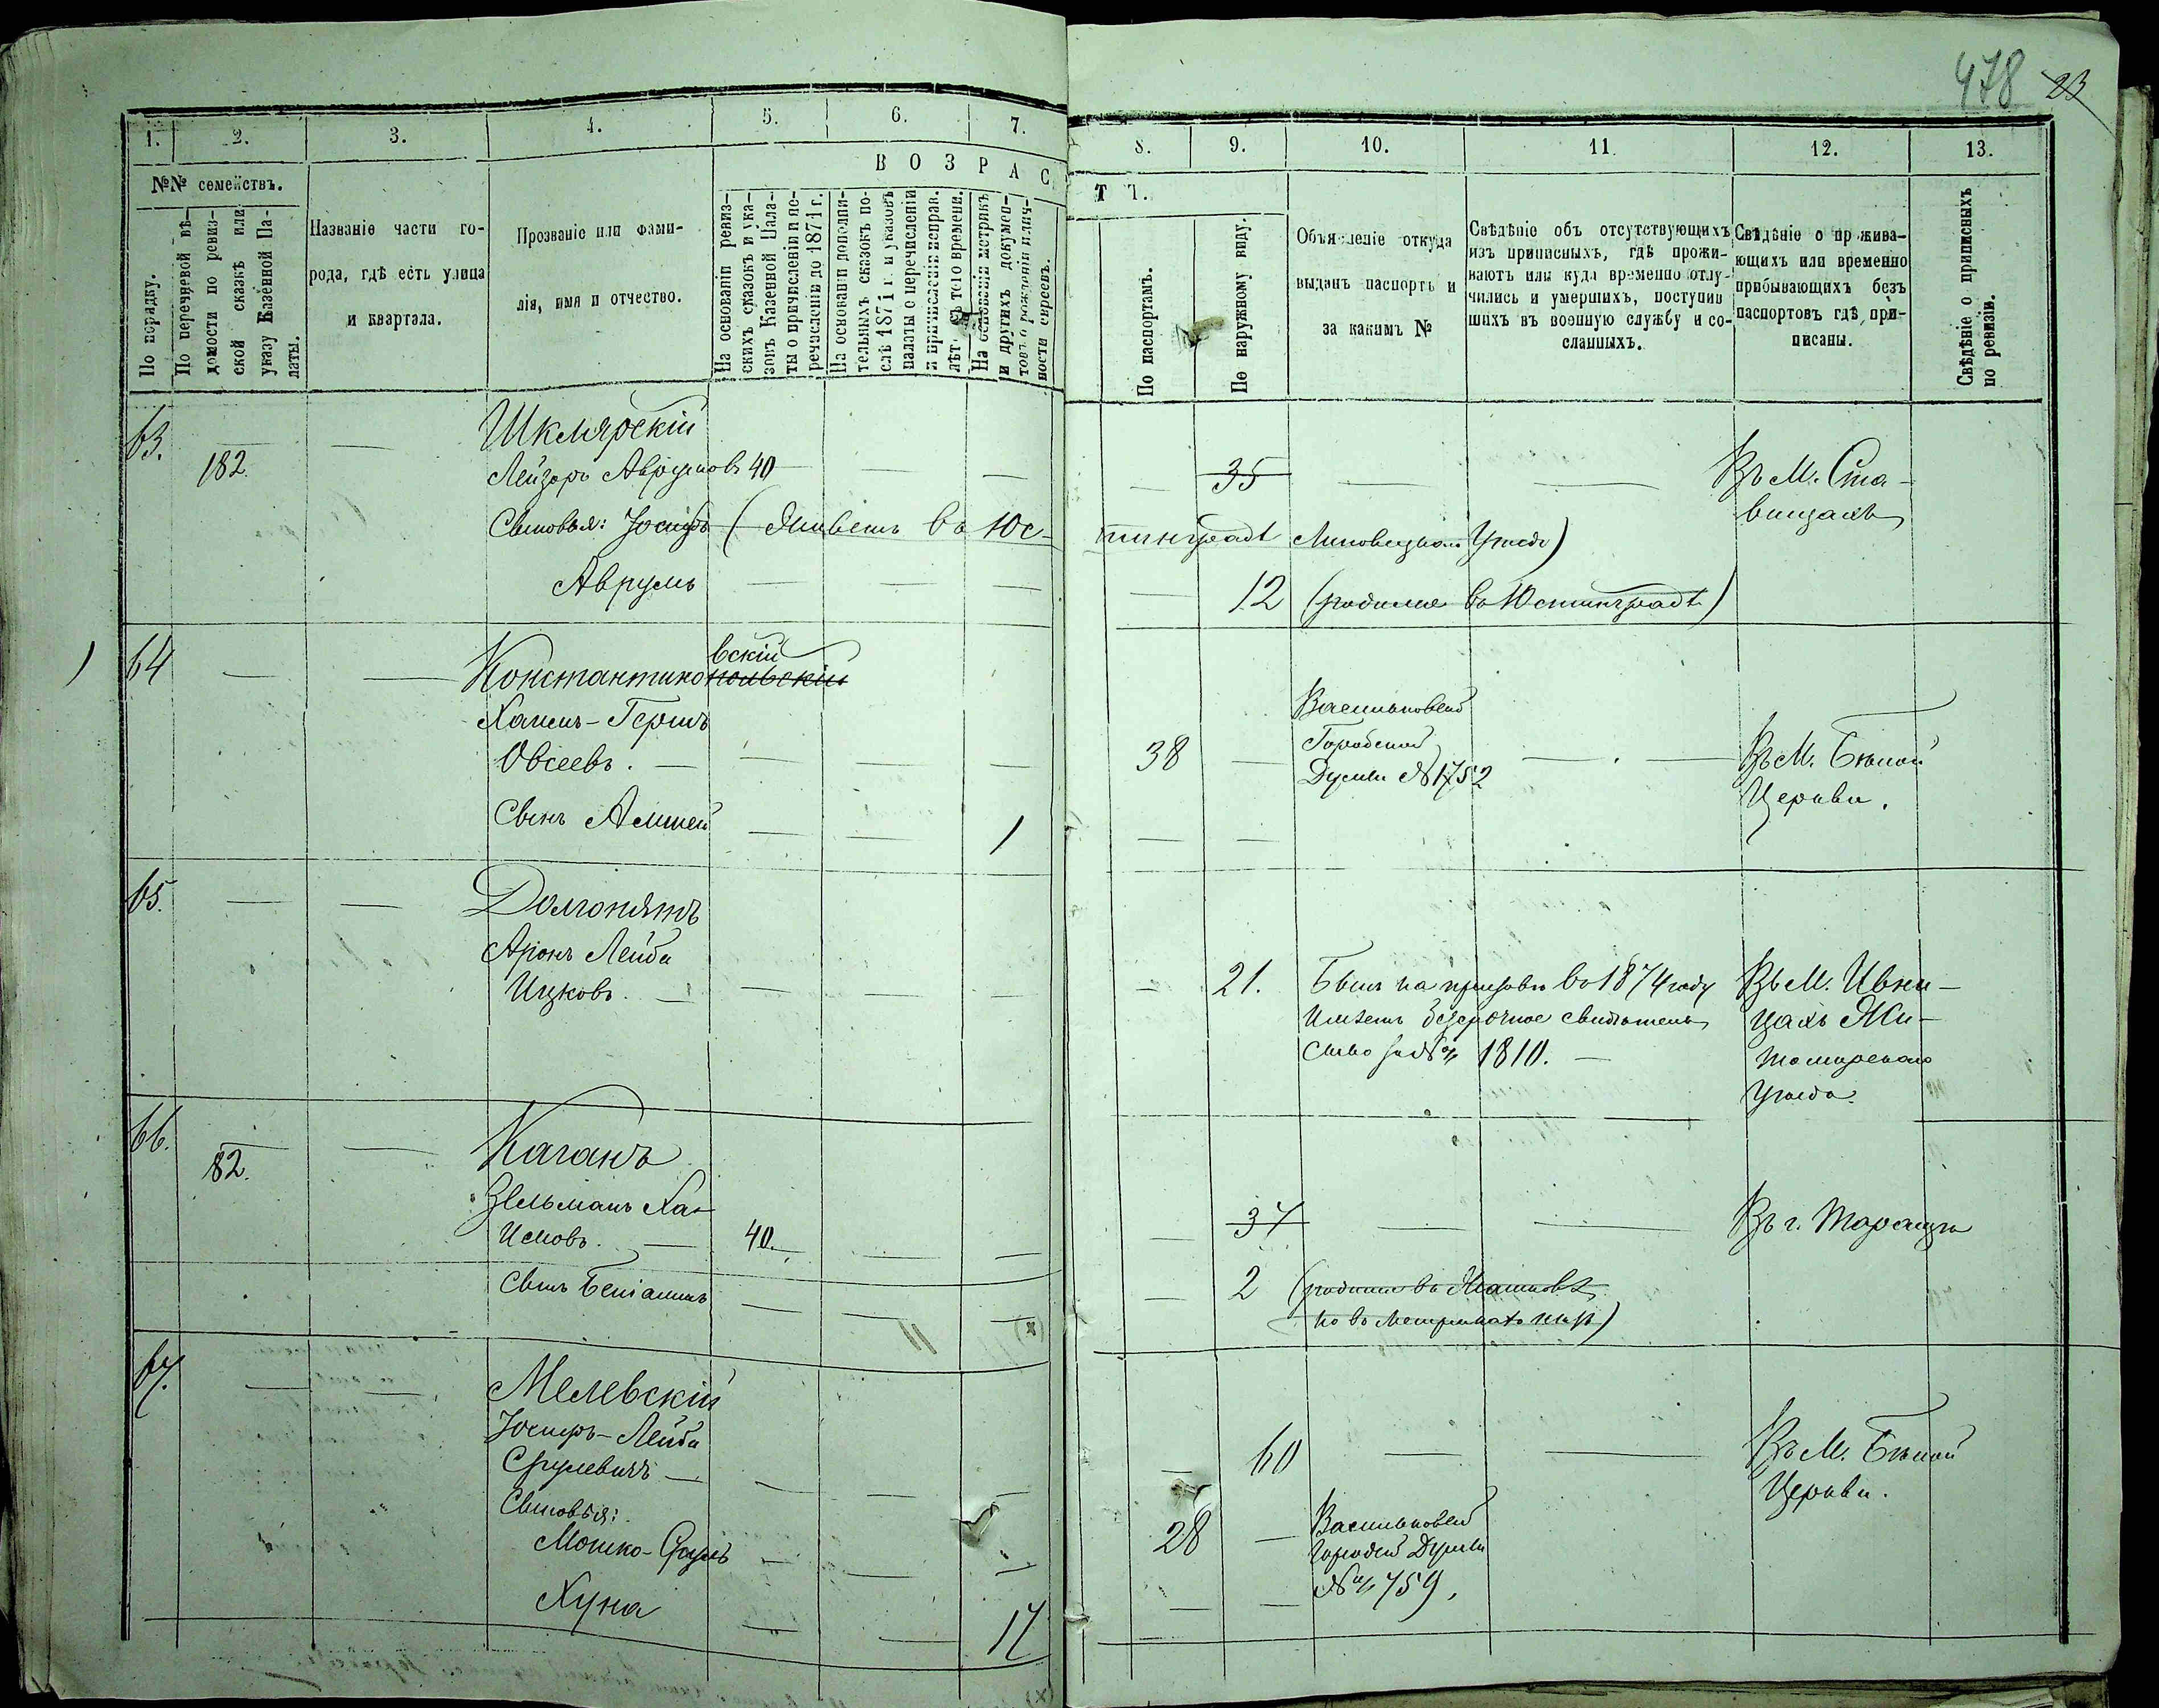 478 23
1. 2. 3. 4. 5. 6. 7.
8. 9. 10. 11. 12. 13.
№№ семействъ.
По порядку.
По перечневой вѣ-
домости по ревиз-
ской сказкѣ или
указу Казенной Па-
латы.
Названіе части го-
рода, гдѣ есть улица
и квартала.
Прозваніе или фами-
лія, имя и отчество.
ВОЗРАС
ТЪ.
На основаніи ревиз-
скихъ сказокъ и ука-
зовъ Казенной Пала-
ты о причисленіи и пе-
речисленіи до 1871 г.
На основаніи дополни-
тельныхъ сказокъ по-
слѣ 1871 г. и указовъ
палаты о перечисленіи
и причисленіи исправ.
лѣтъ съ того времени.
На основаніи метрикъ
и другихъ докумен-
товъ о рожденіи и лич-
ности евреевъ.
По паспортамъ.
По наружному виду.
Объясненіе откуда
выданъ паспортъ и
за какимъ №
Свѣдѣніе объ отсутствующихъ
изъ приписныхъ, гдѣ прожи-
ваютъ или куда временно отлу-
чились и умершихъ, поступив
шихъ въ военную службу и со-
сланныхъ.
Свѣдѣніе о прожива-
ющихъ или временно
прибывающихъ безъ
паспортовъ гдѣ при-
писаны.
Свѣдѣніе о приписныхъ
по ревизіи.
63. 182. Шклярскій
Лейзоръ Аврумовъ 40 35 Въ М. Ста-
вищахъ
Сыновья: Іосифъ (живетъ въ Юс-
тинградѣ Липовецкаго Уѣзда)
Аврумъ 12 (родился въ Юстинградѣ)
64 Константиновскій
польскій
Хаимъ-Гершъ
Овсеевъ. 38
Васильковской
Городской
Думы №1752
Въ М. Бѣлой
Церкви.
Сынъ 1
65. Долгопятъ
Аронъ Лейба
Ицковъ. 21.
Былъ на призывѣ въ 1874 году
Имѣетъ безсрочное свидѣтель
ство за № 1810.
Въ М. Ивни-
цахъ Жи-
томирскаго
Уѣзда.
66. 82. Каганъ
Зельманъ Ха-
имовъ. 40. 37 Въ г. Таращѣ
Сынъ Беніаминъ 2 (родился въ
но въ метрикахъ нѣтъ)
(x)
67. Мелевскій
Іосифъ-Лейба
Срулевичъ 60
Въ М. Бѣлой
Церкви.
Сыновья:
Мошко-Сруль 28
Васильковской
Городской Думы
№ 759.
Хуна 17